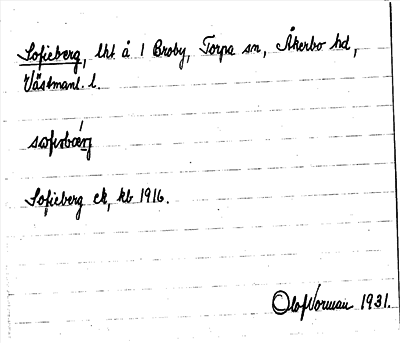 Sofieberg, lht å 1 Broby, Torpa sn, Åkerbo hd,
Västmanl. l.
Sofieberg ek, kb 1916.
Olof Norman 1931.